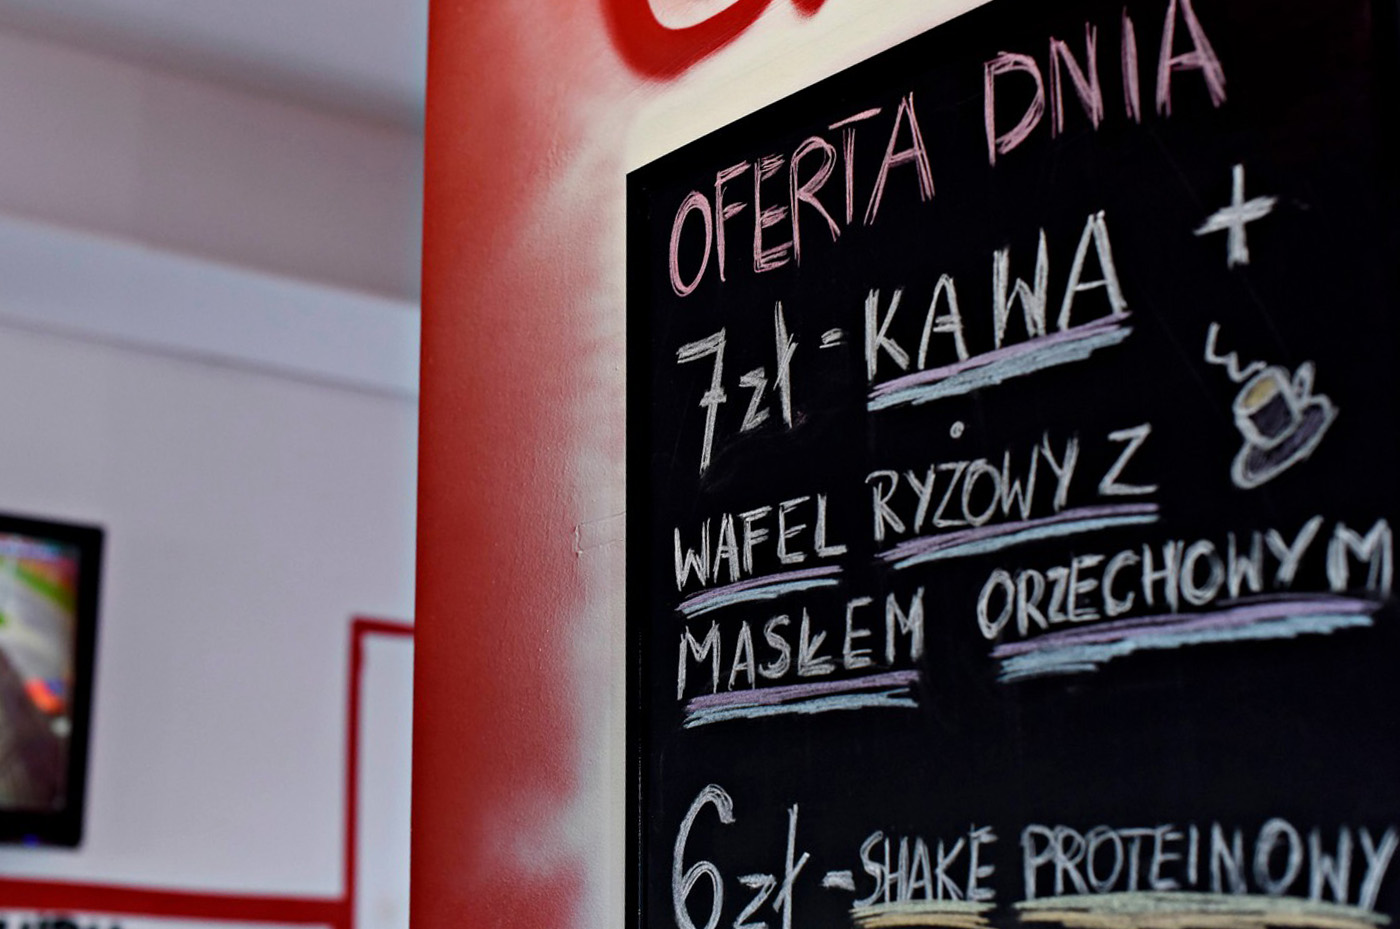 OFERTA DNIA
7 zł - KAWA +
WAFEL RYŻOWY Z
MASŁEM ORZECHOWYM
6 zł - SHAKE PROTEINOWY